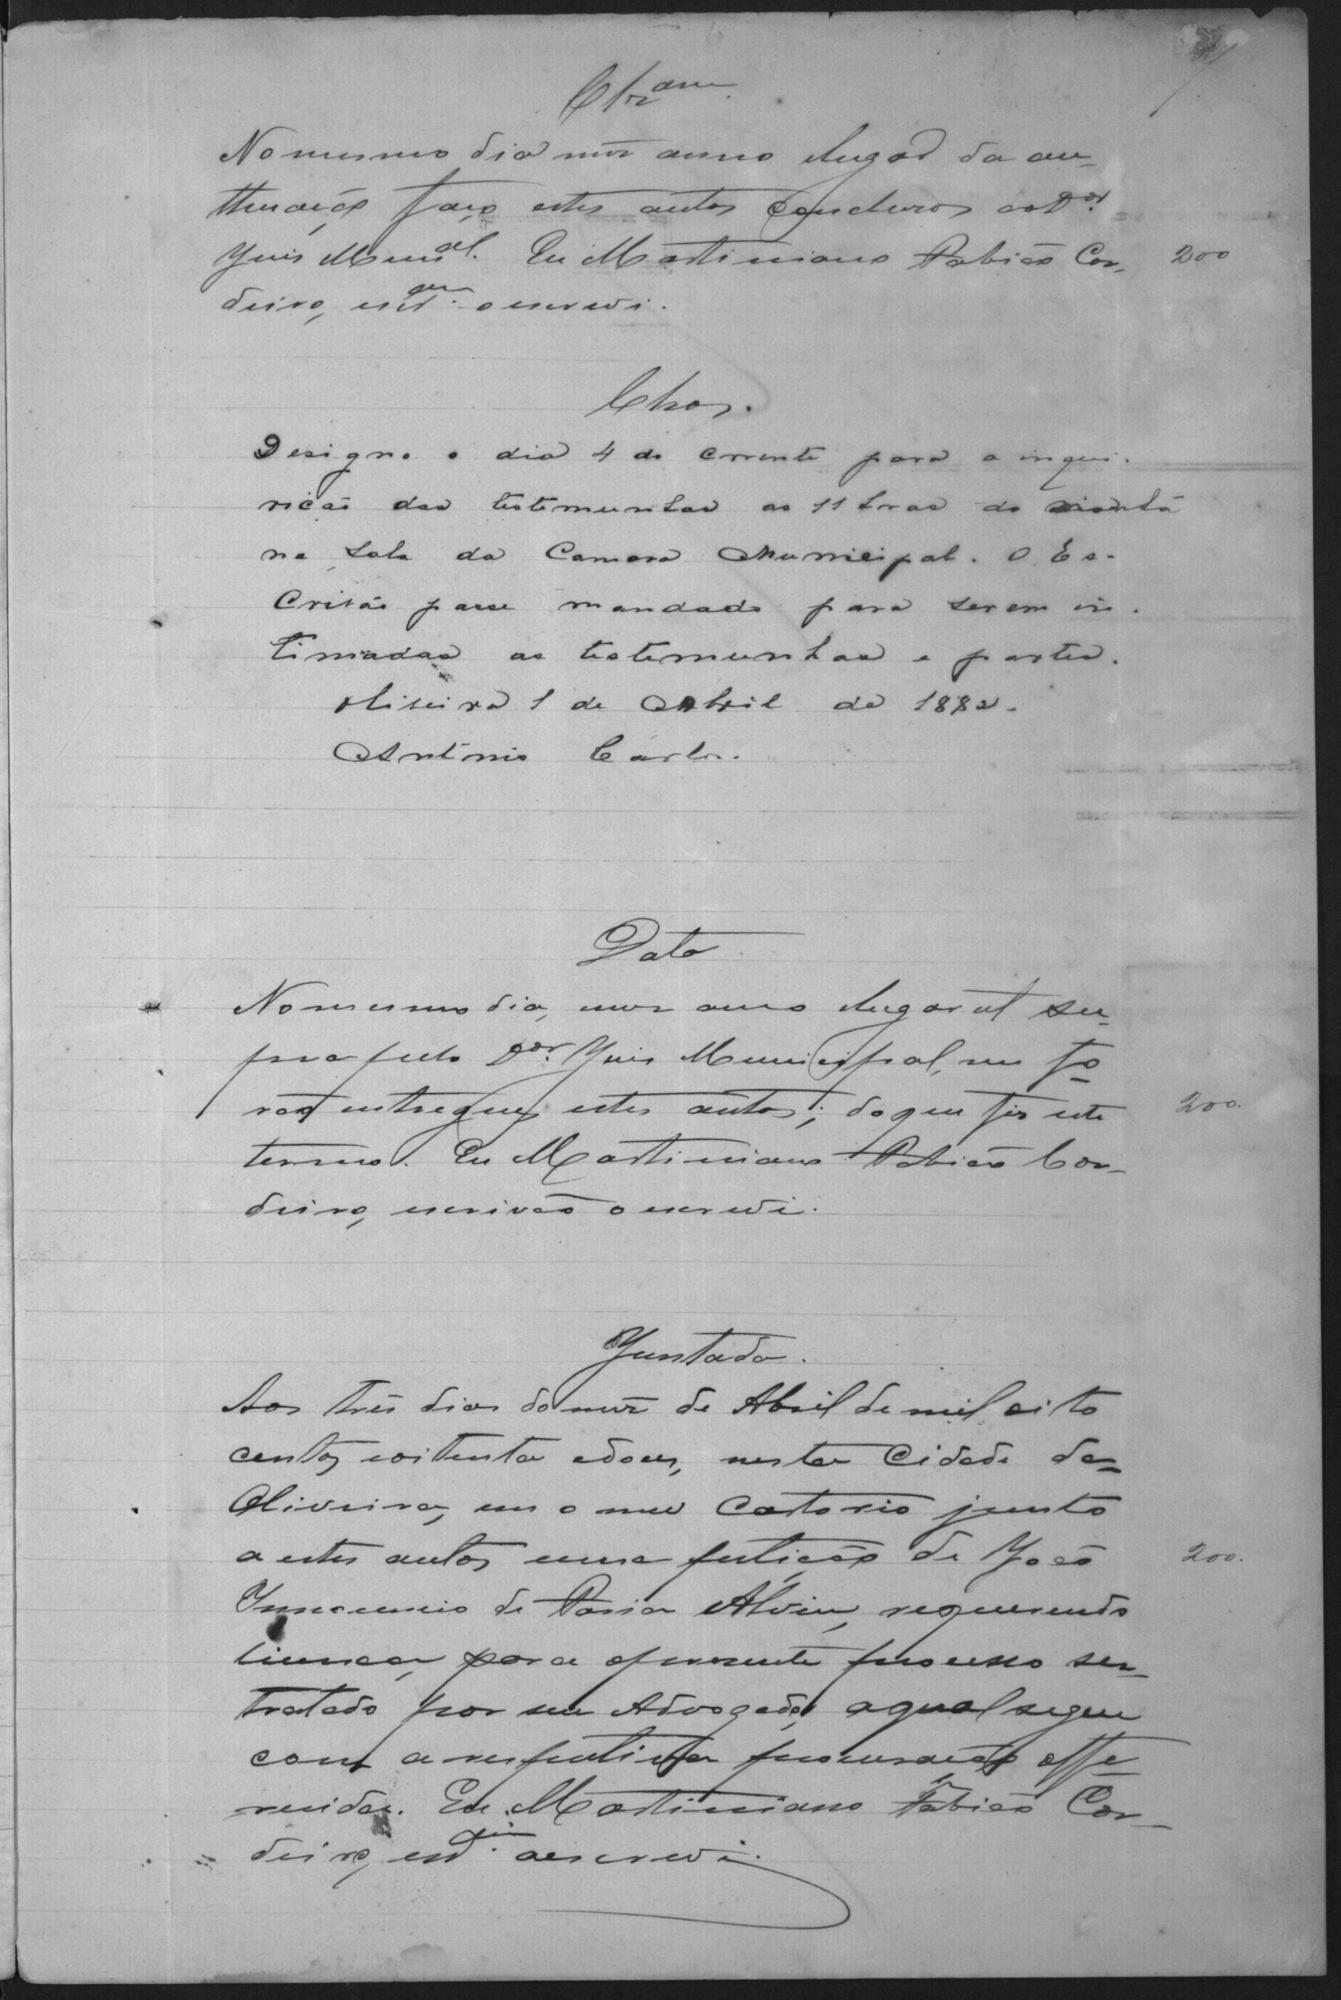 Clzam.
No mesmo dia mez anno e lugar da au-
thuação faço estes autos conclusos ao Dor.
Juis Munial. Eu Martiniano Fabião Cor- 200
deiro, escrm. o escrevi.
Clsos.
Designo o dia 4 do corrente para a inqui-
rição das testemunhas as 11 horas da manhã
na sala da Camara Municipal. O Es-
crivão passe mandado para serem in-
timadas as testemunhas e partes.
Oliveira 1 de Abril de 1882.
Antonio Carlos.
Data
No mesmo dia, mez anno e lugar ut su-
pra pelo Dor. Juis Municipal, me fo-
rão entregues estes autos; do que fiz este 200.
termo. Eu Martiniano Fabião Cor-
deiro, escrivão o escrevi.
Juntada.
Aos três dias do mez de Abril de mil oito
centos e oitenta e dous, nesta Cidade da
Oliveira, em o meu Cartorio junto
a estes autos uma petição de João 200.
Innocencio de Faria Alvim, requerendo
licença para o presente processo ser
tratado por seu Advogado, a qual segue
com a respectiva procuração offe-
recida. Eu Martiniano Fabião Cor-
deiro, o escrevi.